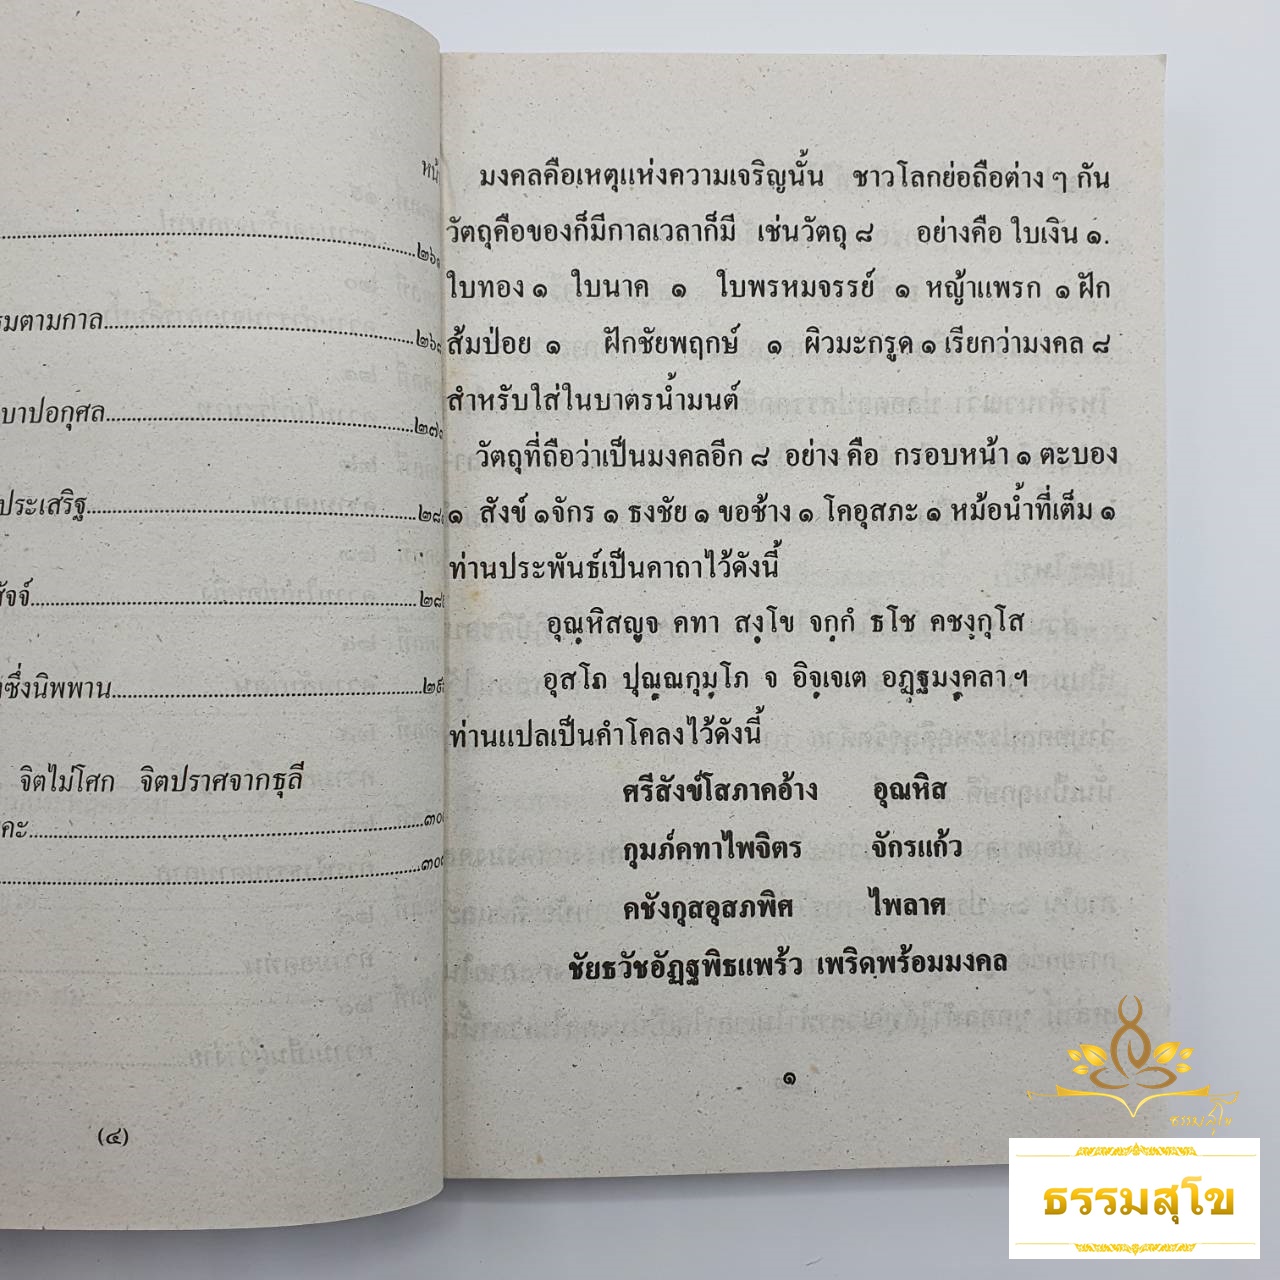 หน้
๒๖
รมตามกาล
๒๖
บาปอกุศล
๒๗
ประเสริฐ
๒๘
สัจจ์
๒๘
ซึ่งนิพพาน
๒๙
จิตไม่โศก จิตปราศจากธุลี
คะ
๓๐
๓๐
(๔)
มงคลคือเหตุแห่งความเจริญนั้น ชาวโลกย่อถือต่าง ๆ กัน
วัตถุคือของก็มีกาลเวลาก็มี เช่นวัตถุ ๘ อย่างคือ ใบเงิน ๑.
ใบทอง ๑ ใบนาค ๑ ใบพรหมจรรย์ ๑ หญ้าแพรก ๑ ฝัก
ส้มป่อย ๑ ฝักชัยพฤกษ์ ๑ ผิวมะกรูด ๑ เรียกว่ามงคล ๘
สำหรับใส่ในบาตรน้ำมนต์
วัตถุที่ถือว่าเป็นมงคลอีก ๘ อย่าง คือ กรอบหน้า ๑ ตะบอง
๑ สังข์ ๑จักร ๑ ธงชัย ๑ ขอช้าง ๑ โคอุสภะ ๑ หม้อน้ำที่เต็ม ๑
ท่านประพันธ์เป็นคาถาไว้ดังนี้
อุณฺหิสญฺจ คทา สงฺโข จกฺกํ ธโช คชงฺกุโส
อุสโภ ปุณฺณกุมฺโภ จ อิจฺเจเต อฏฺฐมงฺคลา ฯ
ท่านแปลเป็นคำโคลงไว้ดังนี้
ศรีสังข์โสภาคอ้าง อุณหิส
กุมภ์คทาไพจิตร จักรแก้ว
คชังกุสอุสภพิศ ไพลาศ
ชัยธวัชอัฏฐพิธแพร้ว เพริดพร้อมมงคล
๑
ธรรมสุโข
ธรรมสุโข